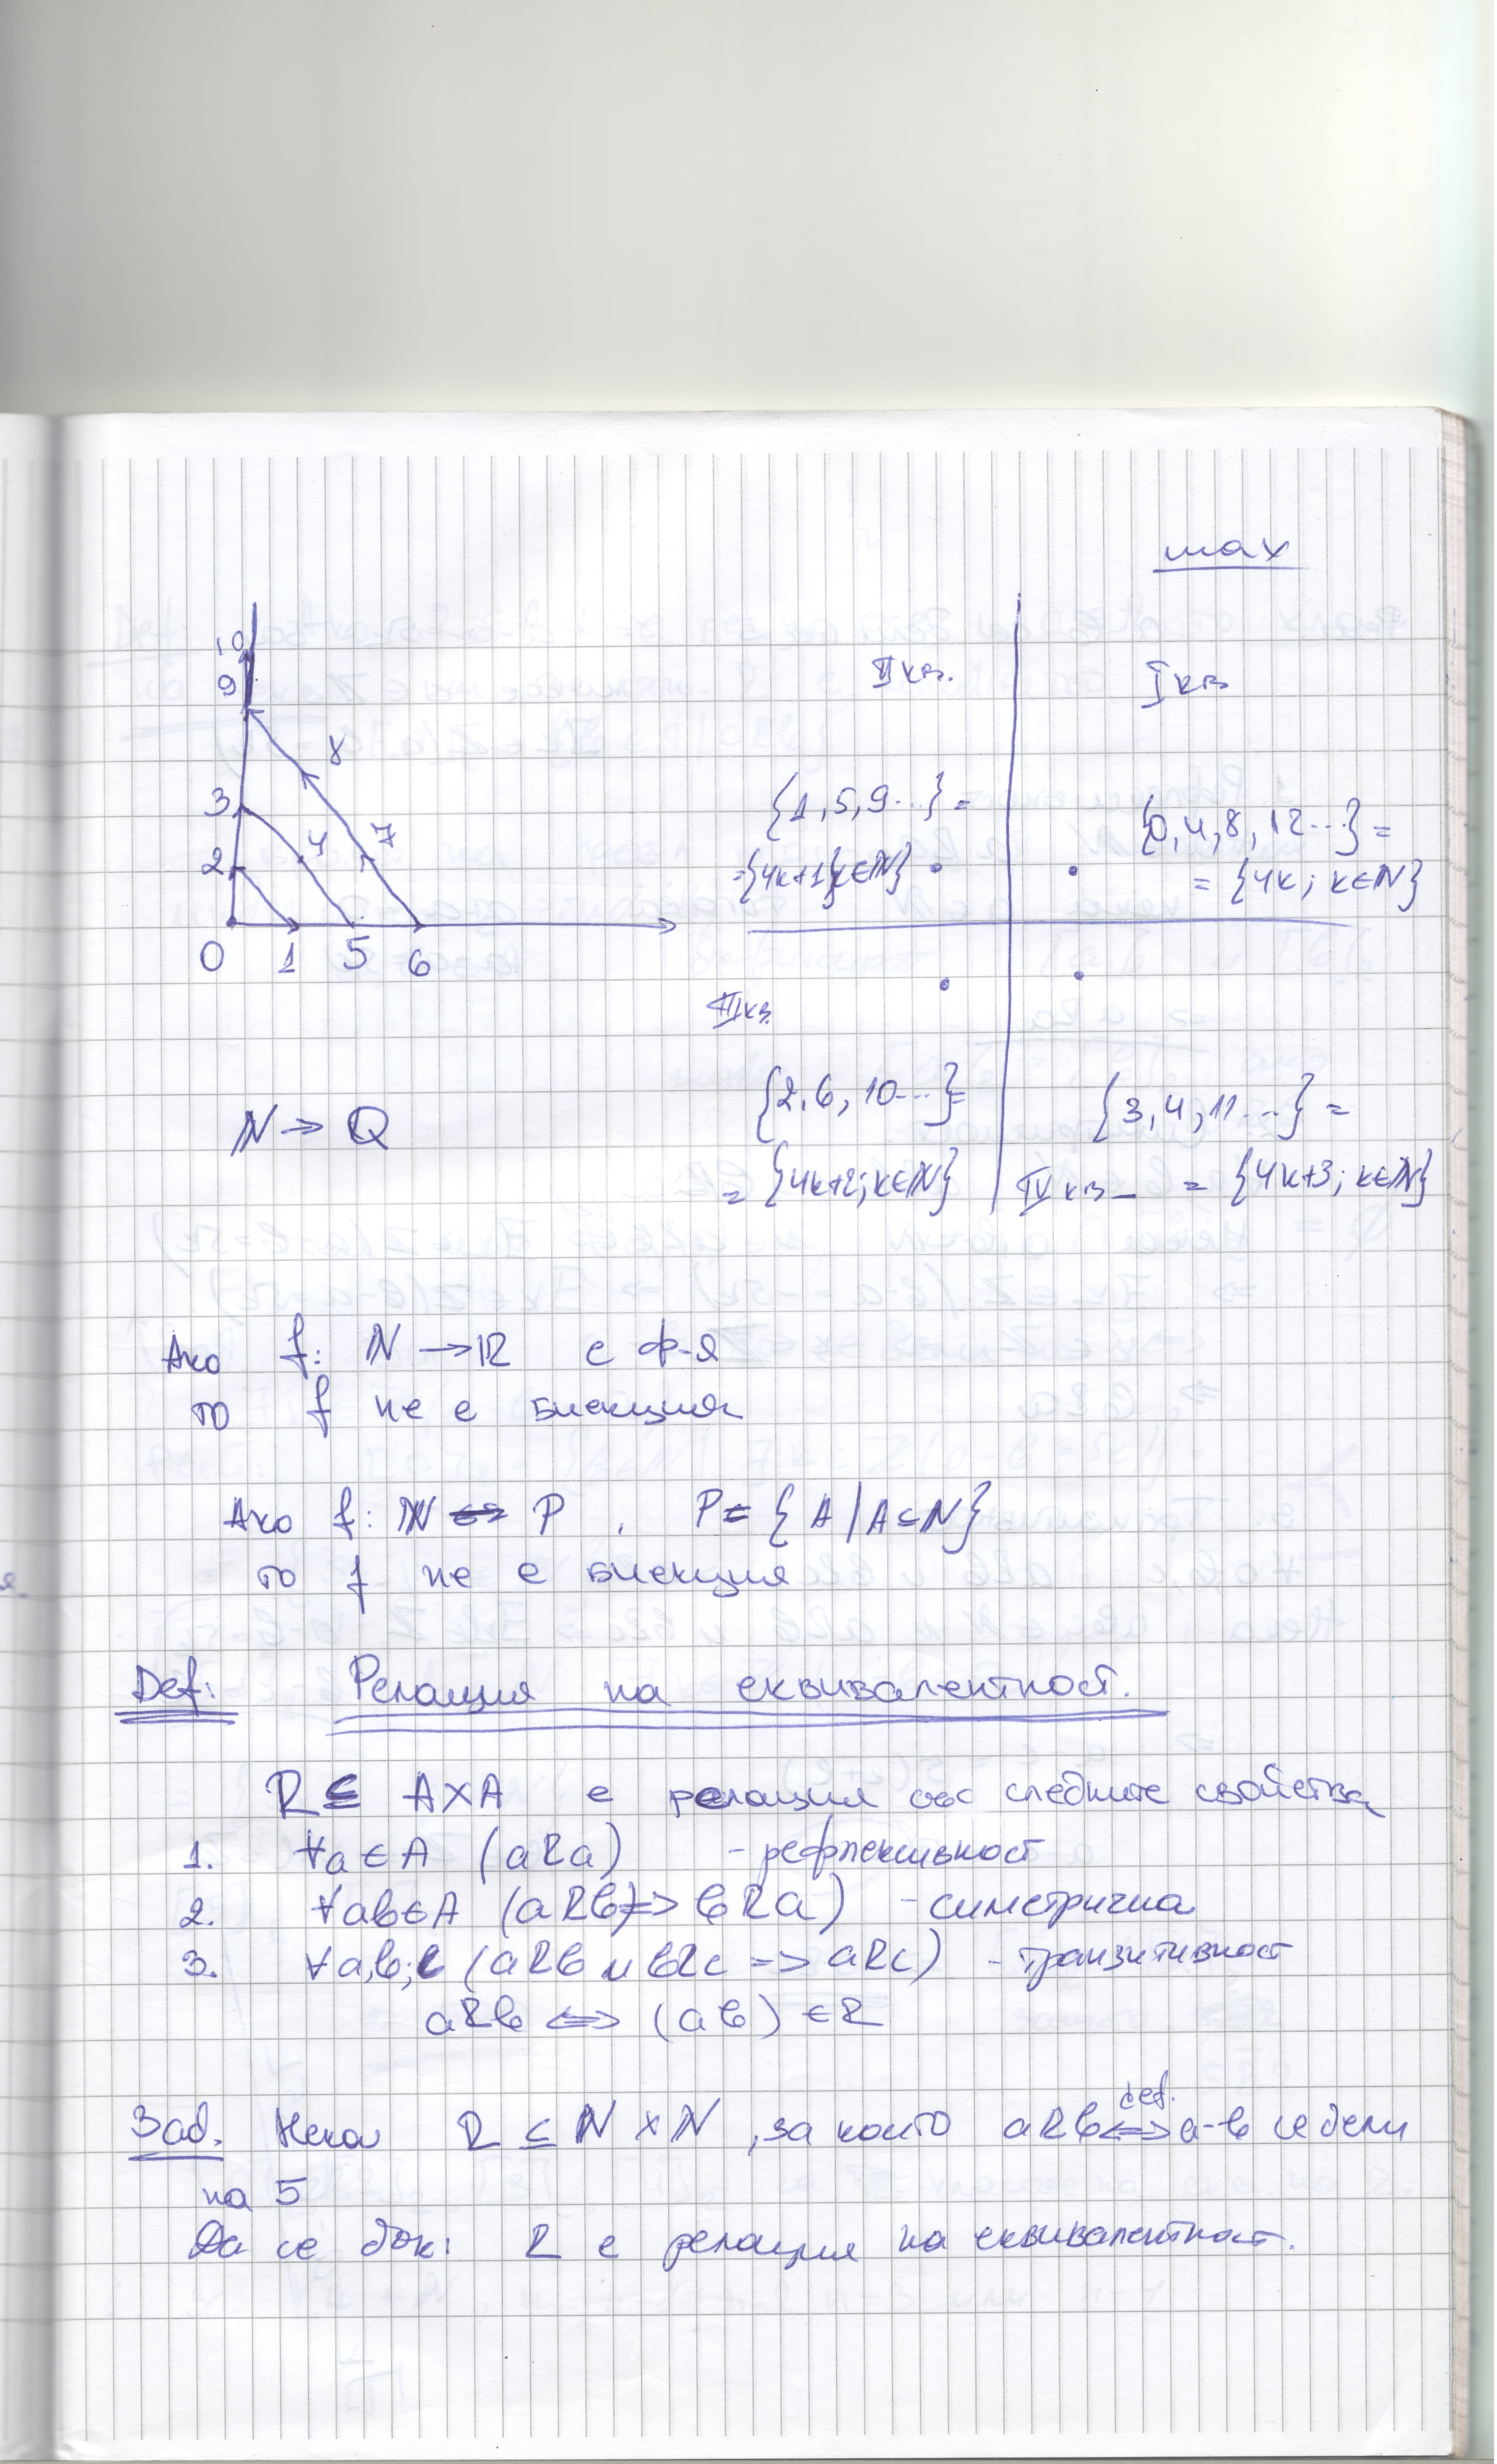 max
10
9
8
3
4
7
2
0 1 5 6
II кв. I кв
{1,5,9...} =
={4k+1;k∈ℕ}
{0,4,8,12...} =
= {4k; k∈ℕ}
III кв.
{2,6,10...}=
= {4k+2;k∈ℕ}
{3,4,11...} =
IV кв _ = {4k+3; k∈ℕ}
ℕ → Q
Ако f: ℕ → ℝ е ф-я
то f не е биекция
Ако f: ℕ ↔ P , P = {A | A⊆ℕ}
то f не е биекция
Def: Релация на еквивалентност.
R ⊆ A×A е релация със следните свойства
1. ∀a∈A (aRa) - рефлексивност
2. ∀ab∈A (aRb => bRa) - симетрична
3. ∀a,b,c (aRb и bRc => aRc) - транзитивност
aRb <=> (ab) ∈ R
Зад. Нека R ⊆ ℕ × ℕ , за които aRb <=> def. a-b се дели
на 5
Да се док: R е релация на еквивалентност.